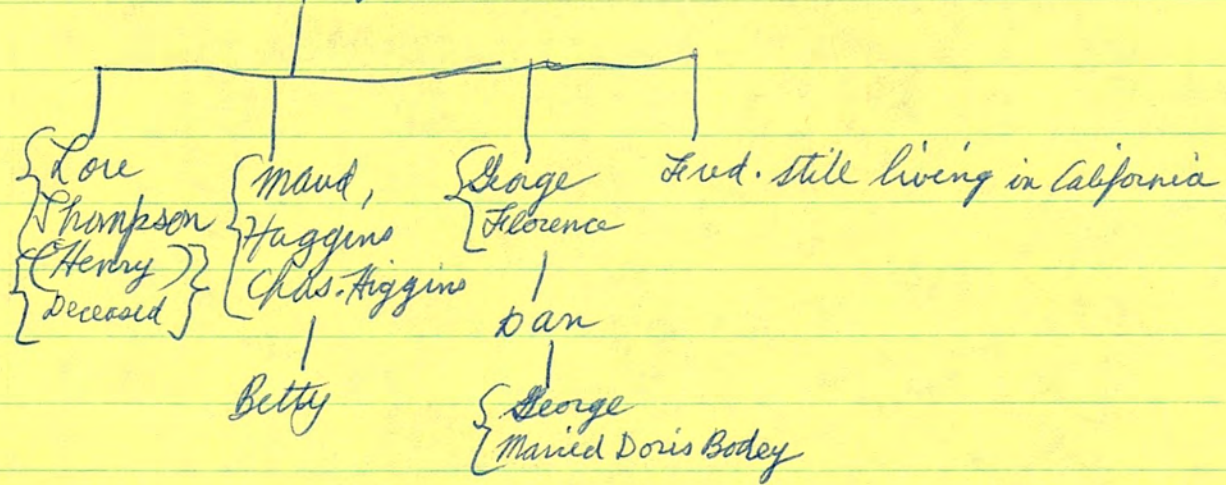 Lore
Thompson
(Henry)
Deceased
Maud,
Huggins
Chas. Higgins
Betty
George
Florence
Dan
George
Married Doris Bodey
Fred. still living in California